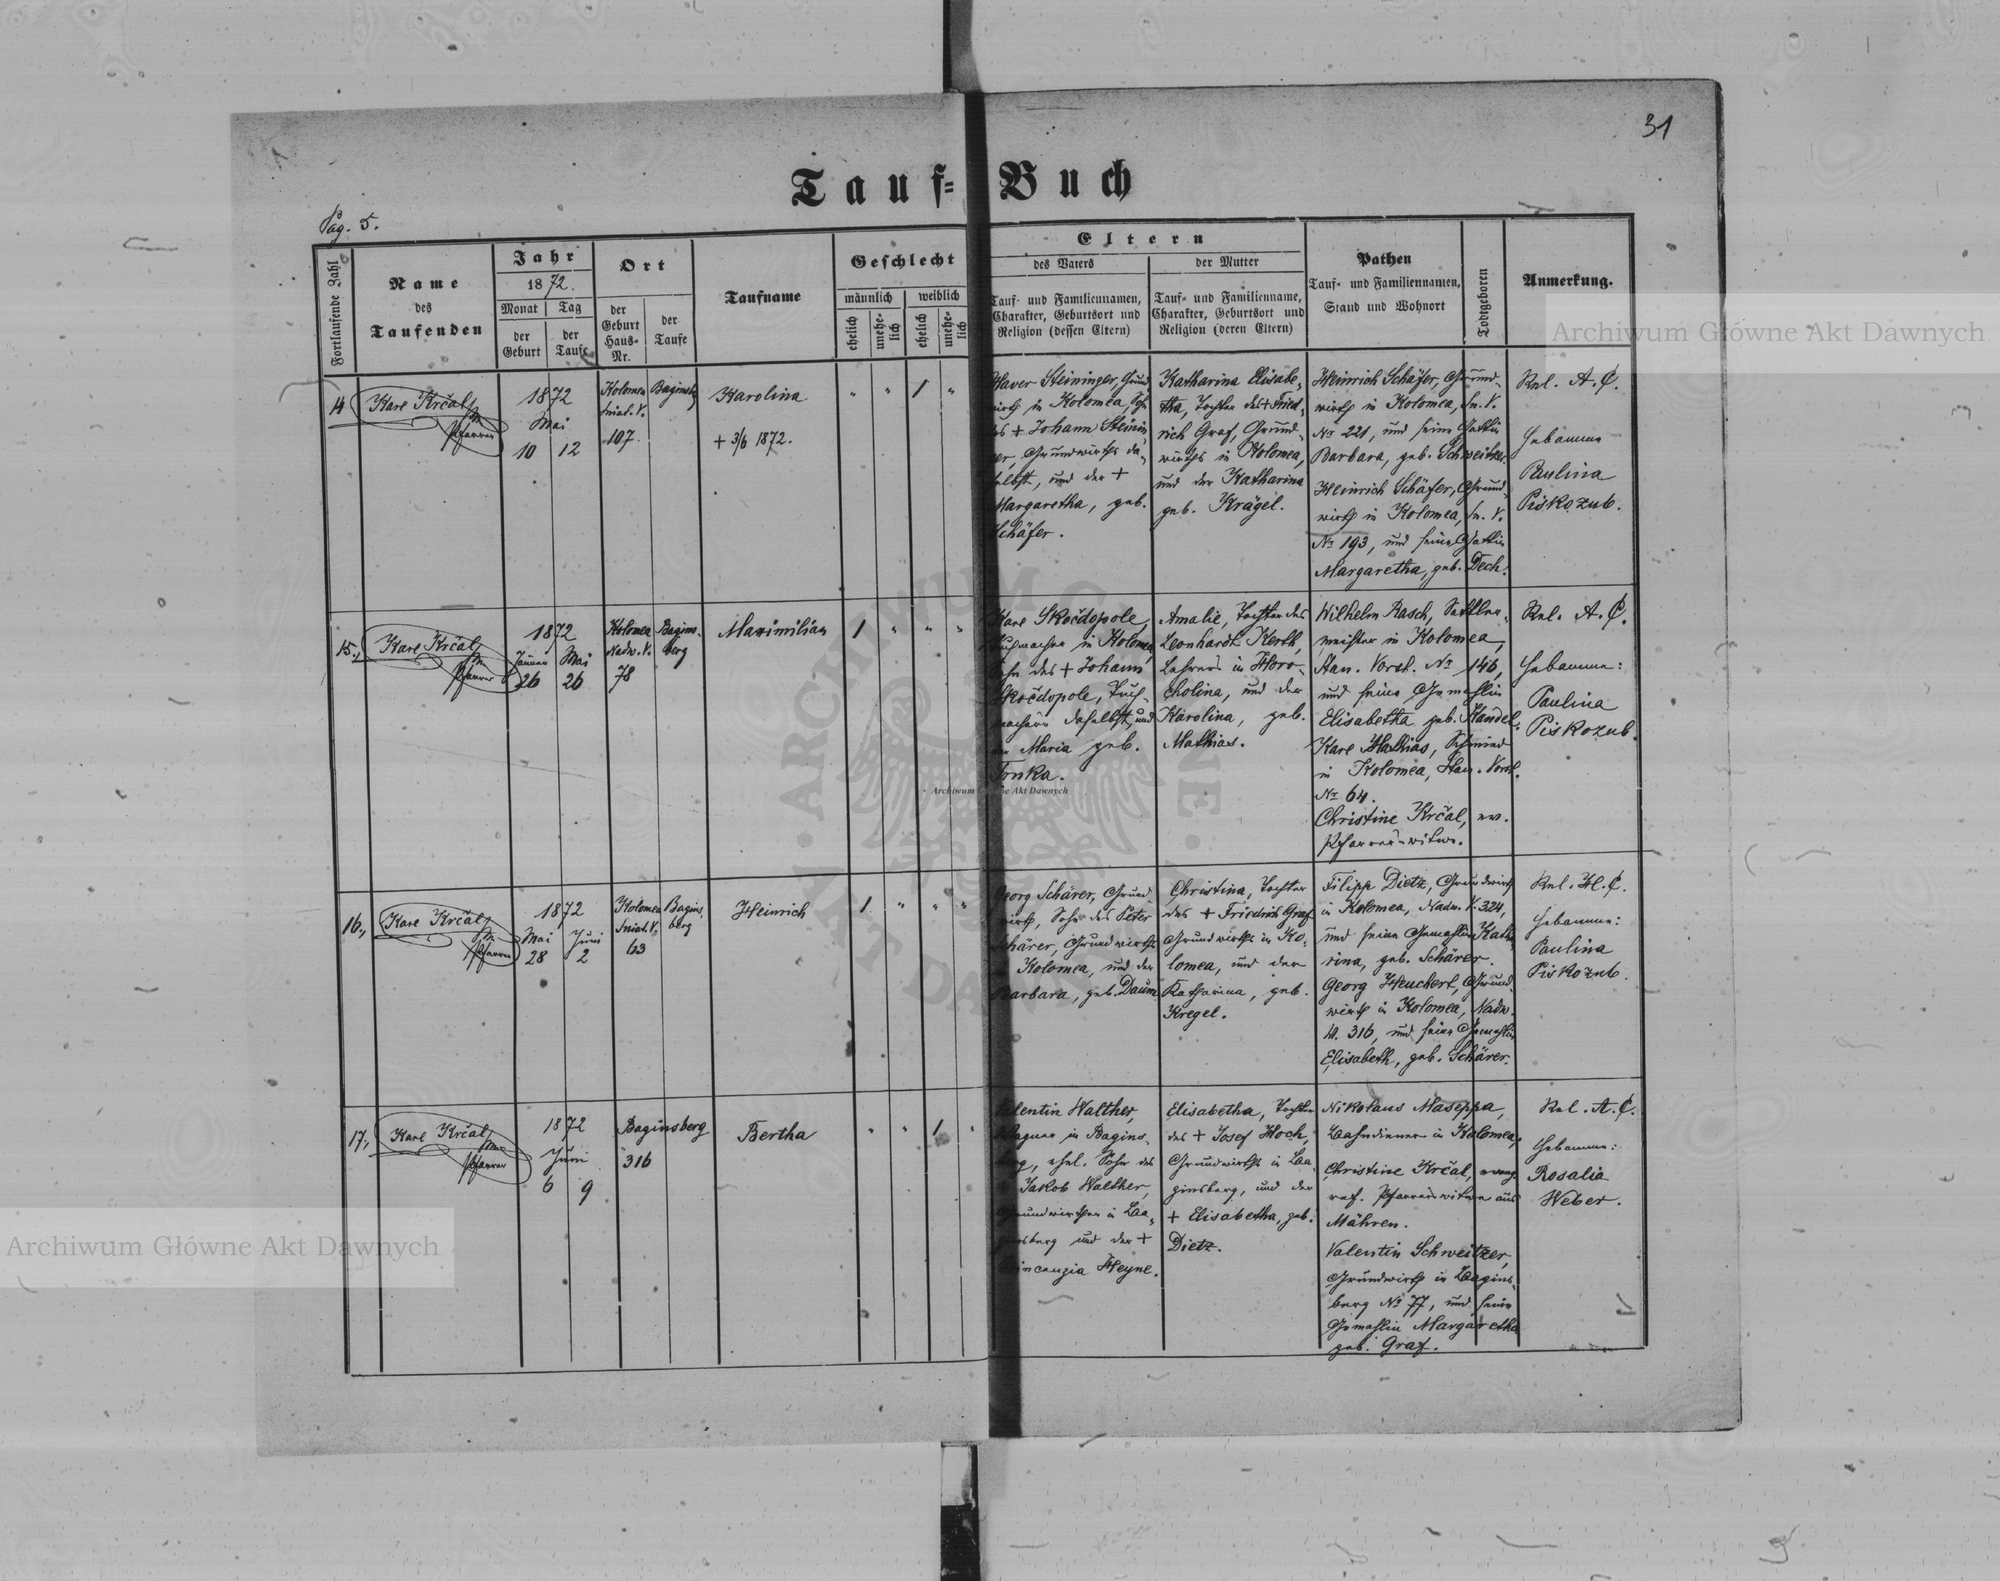 31
Tauf=Buch
Pag. 5.
Fortlaufende Zahl
Name
des
Taufenden
Jahr
1872.
Monat Tag
der
Geburt
der
Taufe
Ort
der
Geburt
Haus=
Nr.
der
Taufe
Taufname
Geschlecht
männlich weiblich
ehelich
unehe=
lich
ehelich
unehe=
lich
Eltern
des Vaters
Tauf- und Familiennamen,
Charakter, Geburtsort und
Religion (dessen Eltern)
der Mutter
Tauf- und Familienname,
Charakter, Geburtsort und
Religion (deren Eltern)
Pathen
Tauf- und Familiennamen,
Stand und Wohnort
Todtgeboren
Anmerkung.
14
Karl Krčal
Pfarrer
1872
Mai
10 12
Kolomea
Sniat. V.
107.
Baginsbg
Karolina
+ 3/6 1872.
" " 1 "
Xaver Steininger, Grund
wirth in Kolomea, Sohn
des + Johann Steinin
ger, Grundwirths da-
selbst, und der +
Margaretha, geb.
Schäfer.
Katharina Elisabe-
tha, Tochter des + Fried-
rich Graf, Grund-
wirths in Kolomea,
und der Katharina
geb. Krägel.
Heinrich Schäfer, Grund-
wirth in Kolomea, Sn. V.
No 221, und seine Gattin
Barbara, geb. Schweitzer.
Heinrich Schäfer, Grund-
wirth in Kolomea, Sn. V.
No 193, und seine Gattin
Margaretha, geb. Dech.
Rel. A. C.
Hebamme
Paulina
Piskozub.
15.,
Karl Krčal
Pfarrer
1872
Jänner Mai
26 26
Kolomea
Nadw. V.
78
Bagins-
berg
Maximilian
1 " " "
Karl Skočdopole,
Tuchmacher in Kolomea,
Sohn des + Johann
Skočdopole, Tuch-
machers daselbst, und
der Maria geb.
Trnka.
Amalie, Tochter des
Leonhardt Kerth,
Lehrers in Horo-
cholina, und der
Karolina, geb.
Mathias.
Wilhelm Rasch, Sattler-
meister in Kolomea,
Stan. Vorst. No 146,
und seine Gemahlin
Elisabetha geb. Kandel.
Karl Mathias, Schmied
in Kolomea, Stan. Vorst.
No 64.
Christine Krčal, ev.
Pfarrerswitwe.
Rel. A. C.
Hebamme:
Paulina
Piskozub.
16.,
Karl Krčal
Pfarrer
1872
Mai Juni
28 2
Kolomea
Sniat. V.
63
Bagins-
berg
Heinrich
1 " " "
Georg Schärer, Grund-
wirth, Sohn des Peter
Schärer, Grundwirths
Kolomea, und der
Barbara, geb. Daum.
Christina, Tochter
des + Friedrich Graf
Grundwirths in Ko-
lomea, und der
Katharina, geb.
Kregel.
Filipp Dietz, Grundwirth
in Kolomea, Nadw. V. 324,
und seine Gemahlin Katha
rina, geb. Schärer.
Georg Heuchert, Grund-
wirth in Kolomea, Nadw.
V. 316, und seine Gemahlin
Elisabeth, geb. Schärer.
Rel. H. C.
Hebamme:
Paulina
Piskozub.
17.,
Karl Krčal
Pfarrer
1872
Juni
6 9
Baginsberg
316
Bertha
" " 1 "
Valentin Walther,
Wagner in Bagins-
berg, ehel. Sohn des
Jakob Walther,
Grundwirthen in Ba-
ginsberg und der +
Vincenzia Heyne.
Elisabetha, Tochter
des + Josef Hoch,
Grundwirths in Ba-
ginsberg, und der
+ Elisabetha, geb.
Dietz.
Nikolaus Maseppa,
Bahndiener in Kolomea,
Christine Krčal, evang.
ref. Pfarrerswitwe aus
Mähren.
Valentin Schweitzer,
Grundwirth in Bagins-
berg No 77, und seine
Gemahlin Margaretha
geb. Graf.
Rel. A. C.
Hebamme:
Rosalia
Weber.
Archiwum Główne Akt Dawnych
Archiwum Główne Akt Dawnych
Archiwum Główne Akt Dawnych